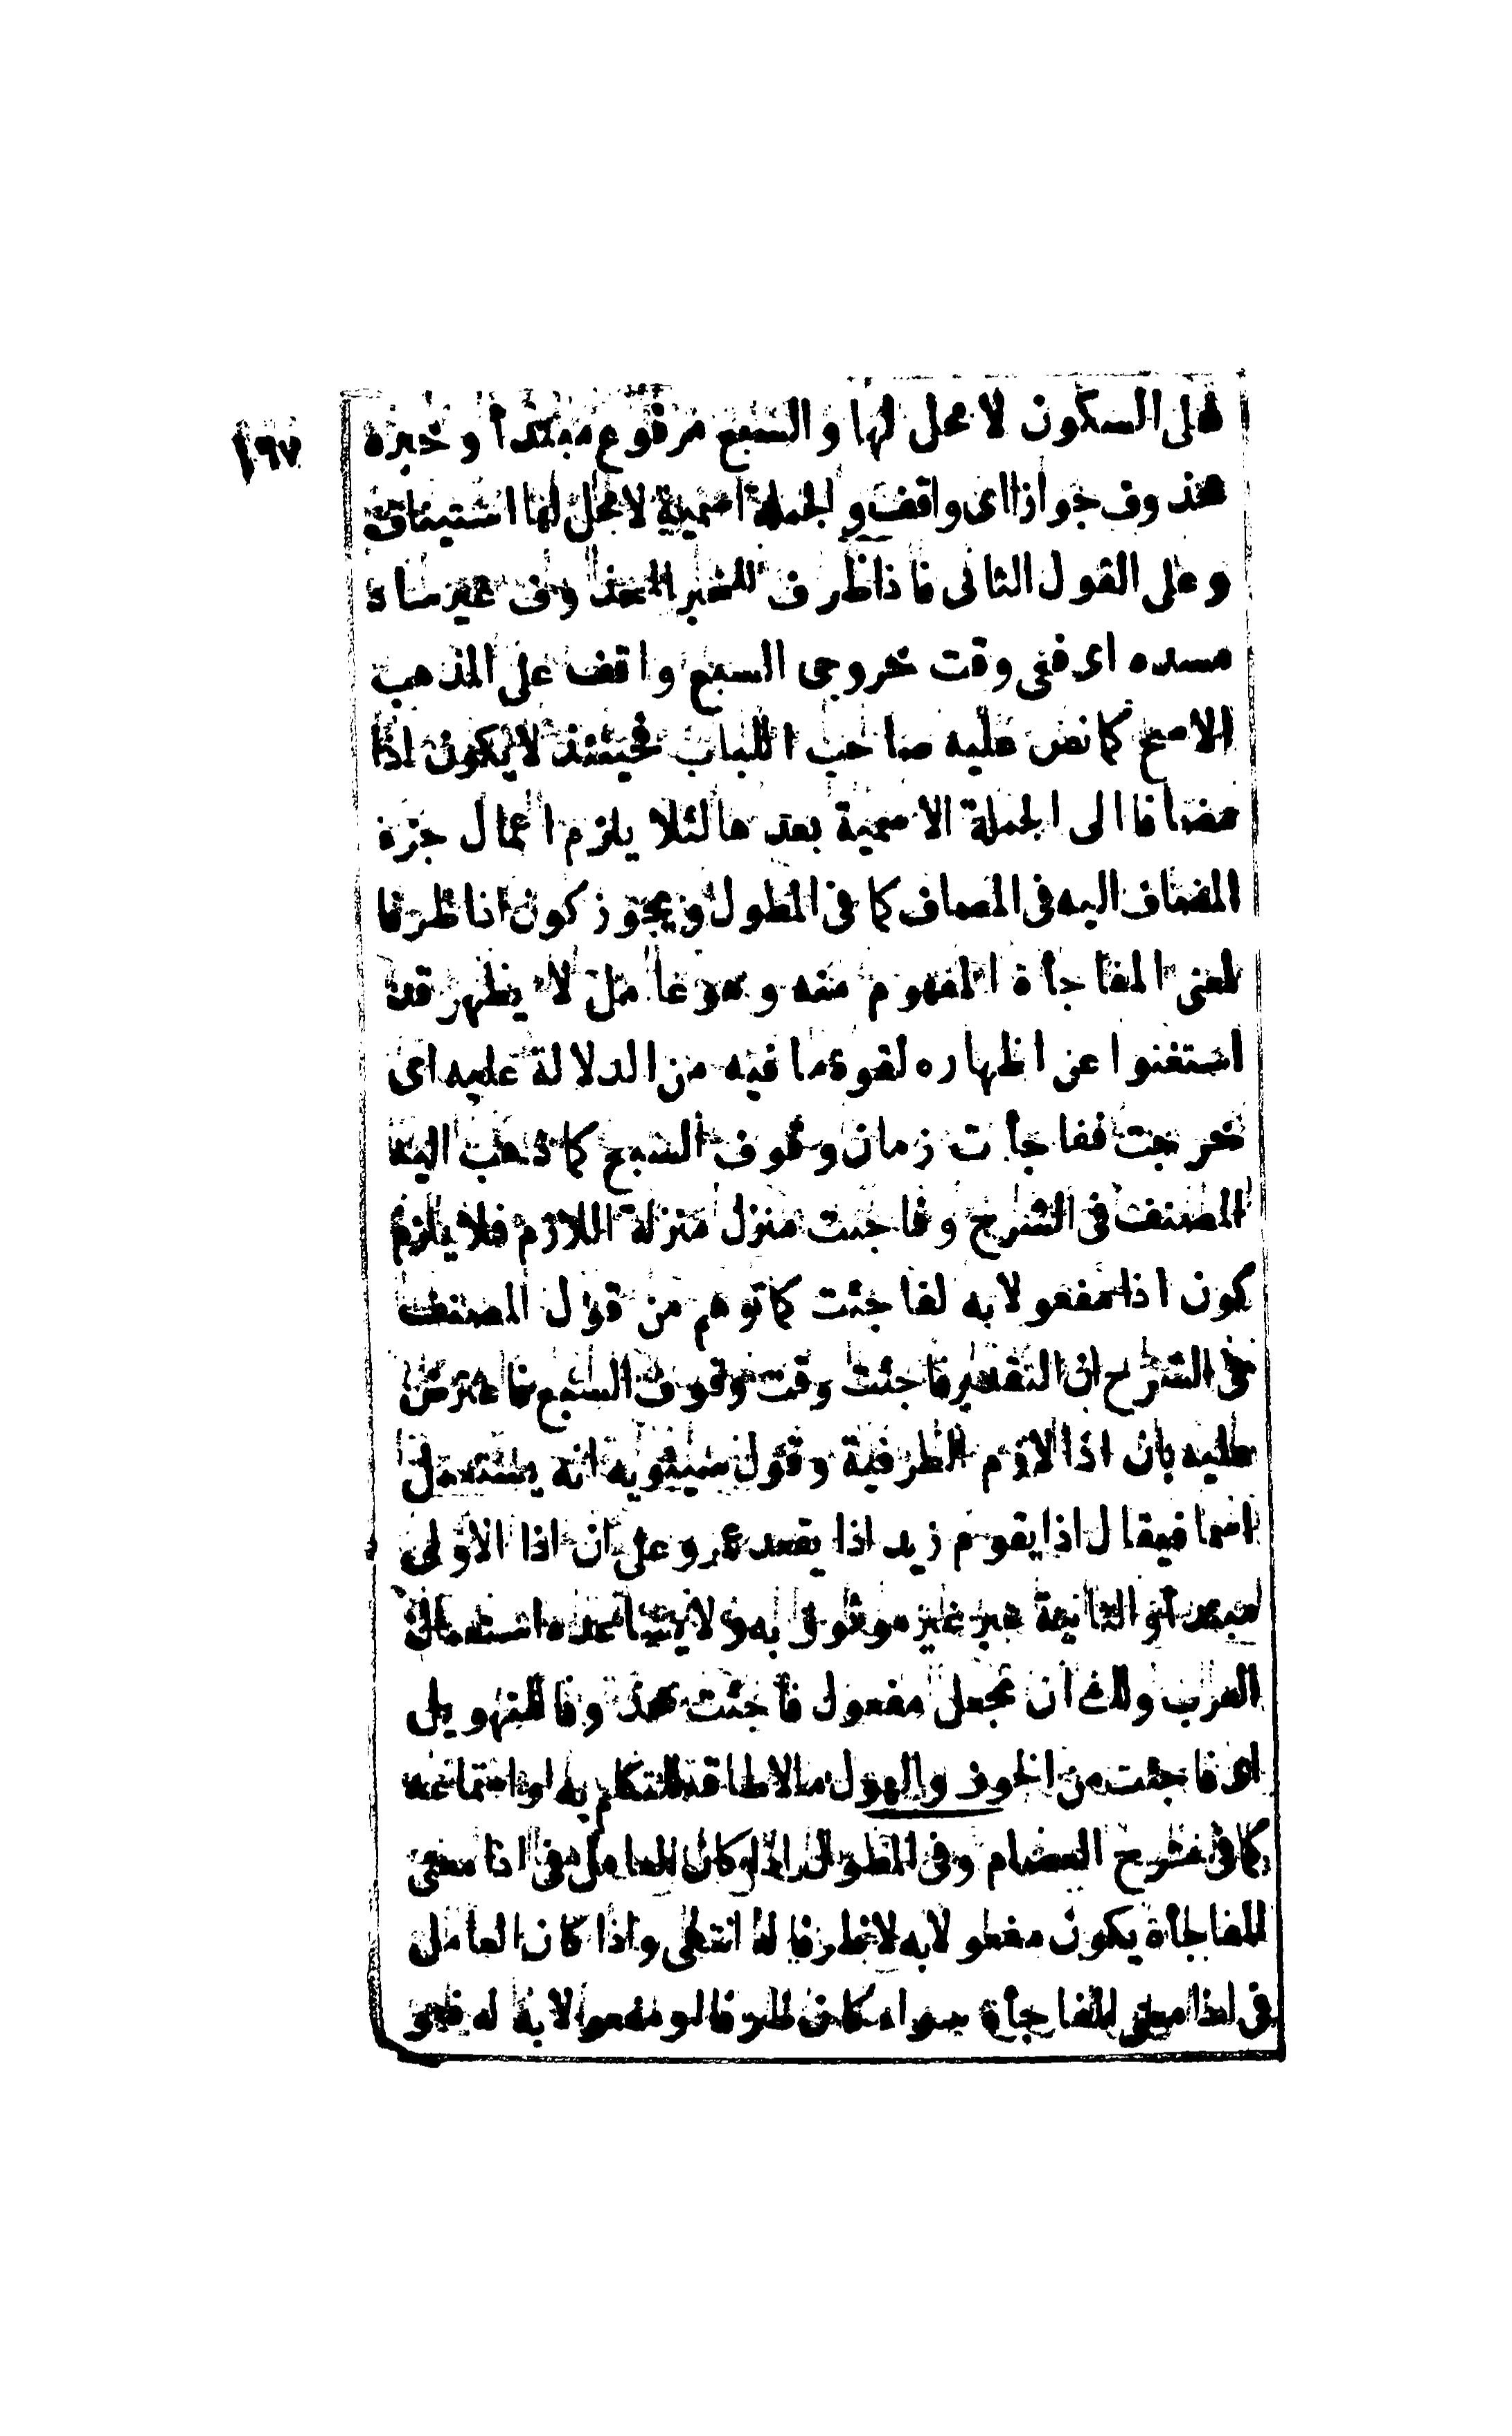 ١٦٧
على السكون لا محل لها والسبع مرفوع مبتدأ وخبره
محذوف جوازا اى واقف والجملة اسمية لا محل لها استيناف
وعلى القول الثانى فاذا ظرف للخبر المحذوف غير ساد
مسده اى ففى وقت خروجى السبع واقف على المذهب
الاصح كما نص عليه صاحب اللباب فحينئذ لا يكون اذا
مضافا الى الجملة الاسمية بعدها لئلا يلزم اعمال جزء
المضاف اليه فى المضاف كما فى المطول ويجوز كون اذا ظرفا
لمعنى المفاجأة المفهوم منه وهو عامل لا يظهر قد
استغنوا عن اظهاره لقوة ما فيه من الدلالة عليه اى
خرجت ففاجأت زمان وقوف السبع كما ذهب اليه
المصنف فى الشرح وفاجئت منزل منزلة اللازم فلا يلزم
كون اذا مفعولا به لفاجئت كما توهم من قول المصنف
فى الشرح ان التقدير فاجئت وقت وقوف السبع فاعترض
عليه بان اذا لازم الظرفية وقول سيبويه انه يستعمل
اسما فيقال اذا يقوم زيد اذا يقعد عمرو على ان اذا الاولى
مبتدأ والثانية خبر غير موثوق به ولا يساعده استعمال
العرب ولك ان تجعل مفعول فاجئت محذوفا للتهويل
اى فاجئت من الخوف والهول ما لا طاقة للتكلم به او استماعه
كما فى شرح العصام وفى المطول اذا كان العامل فى اذا معنى
المفاجأة يكون مفعولا به لا ظرفا له انتهى واذا كان العامل
فى اذا معنى المفاجأة سواء كان ظرفا او مفعولا به له فهو